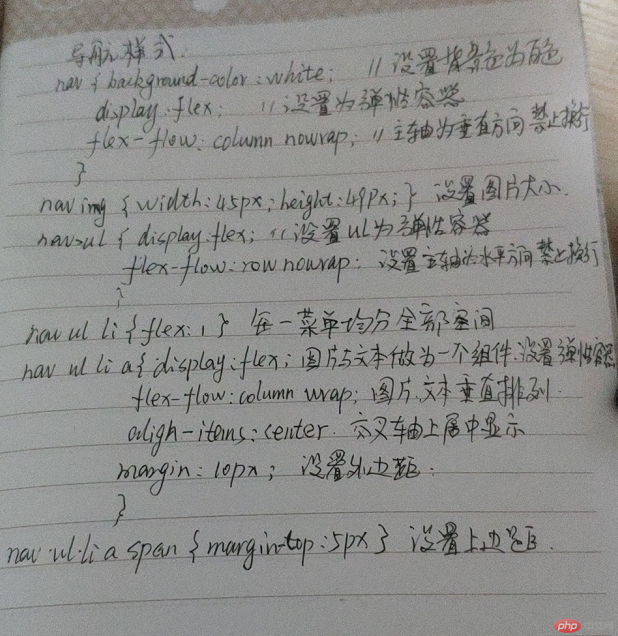 导航样式.
nav { background-color: white; // 设置背景色为白色
display: flex; // 设置为弹性容器
flex-flow: column nowrap; // 主轴为垂直方向 禁止换行
}
nav img { width: 45px; height: 49px; } 设置图片大小.
nav>ul { display: flex; // 设置ul为弹性容器
flex-flow: row nowrap; 设置主轴为水平方向 禁止换行
}
nav ul li { flex: 1 } 每一菜单均分全部空间
nav ul li a { display: flex; 图片与文本做为一个组件.设置弹性容器
flex-flow: column wrap; 图片.文本垂直排列.
align-items: center. 交叉轴上居中显示
margin: 10px; 设置外边距.
}
nav ul li a span { margin-top: 5px } 设置上边距.
php